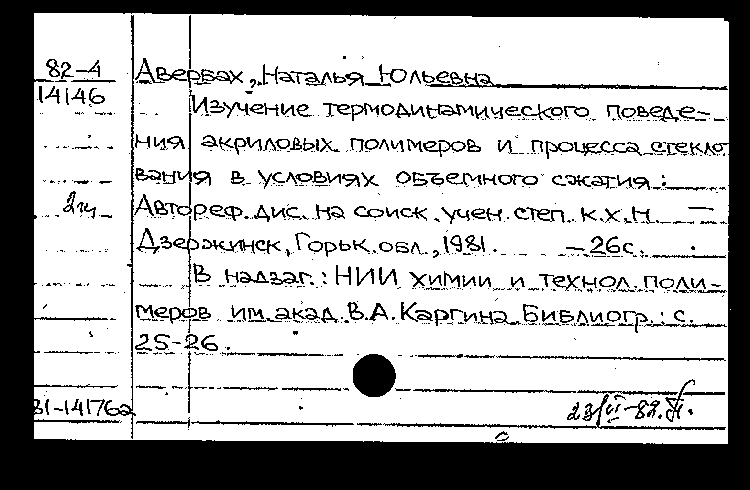 82-4
14146
Авербах, Наталья Юльевна
Изучение термодинамического поведе-
ния акриловых полимеров и процесса стекло
вания в условиях объемного сжатия :
Автореф. дис. на соиск. учен. степ. к.х.н. —
Дзержинск, Горьк. обл., 1981. — 26с.
В надзаг.: НИИ химии и технол. поли-
меров им. акад. В.А. Каргина. Библиогр.: с.
25-26.
81-14176а